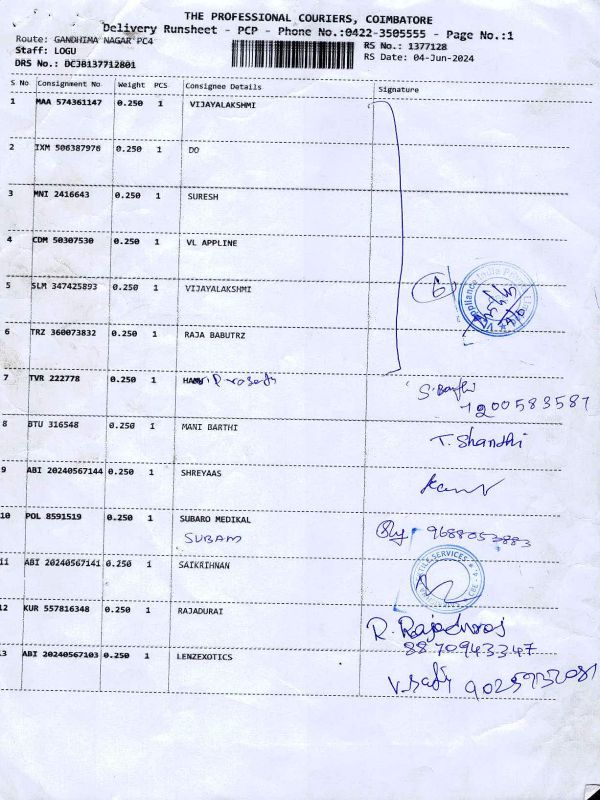 THE PROFESSIONAL COURIERS, COIMBATORE
Delivery Runsheet - PCP - Phone No.:0422-3505555 - Page No.:1
Route: GANDHIMA NAGAR PC4 RS No.: 1377128
Staff: LOGU RS Date: 04-Jun-2024
DRS No.: DCJB137712801
S No Consignment No Weight PCS Consignee Details Signature
1 MAA 574361147 0.250 1 VIJAYALAKSHMI
2 IXM 506387976 0.250 1 DO
3 MNI 2416643 0.250 1 SURESH
4 CDM 50307530 0.250 1 VL APPLINE
6
5 SLM 347425893 0.250 1 VIJAYALAKSHMI
6 TRZ 360073832 0.250 1 RAJA BABUTRZ
7 TVR 222778 0.250 1
8 BTU 316548 0.250 1 MANI BARTHI T. Shandhi
9 ABI 20240567144 0.250 1 SHREYAAS
10 POL 8591519 0.250 1 SUBARO MEDIKAL 9688053883
SUBAM
11 ABI 20240567141 0.250 1 SAIKRIHNAN
12 KUR 557816348 0.250 1 RAJADURAI R. Rajadurai
8870943347
13 ABI 20240567103 0.250 1 LENZEXOTICS